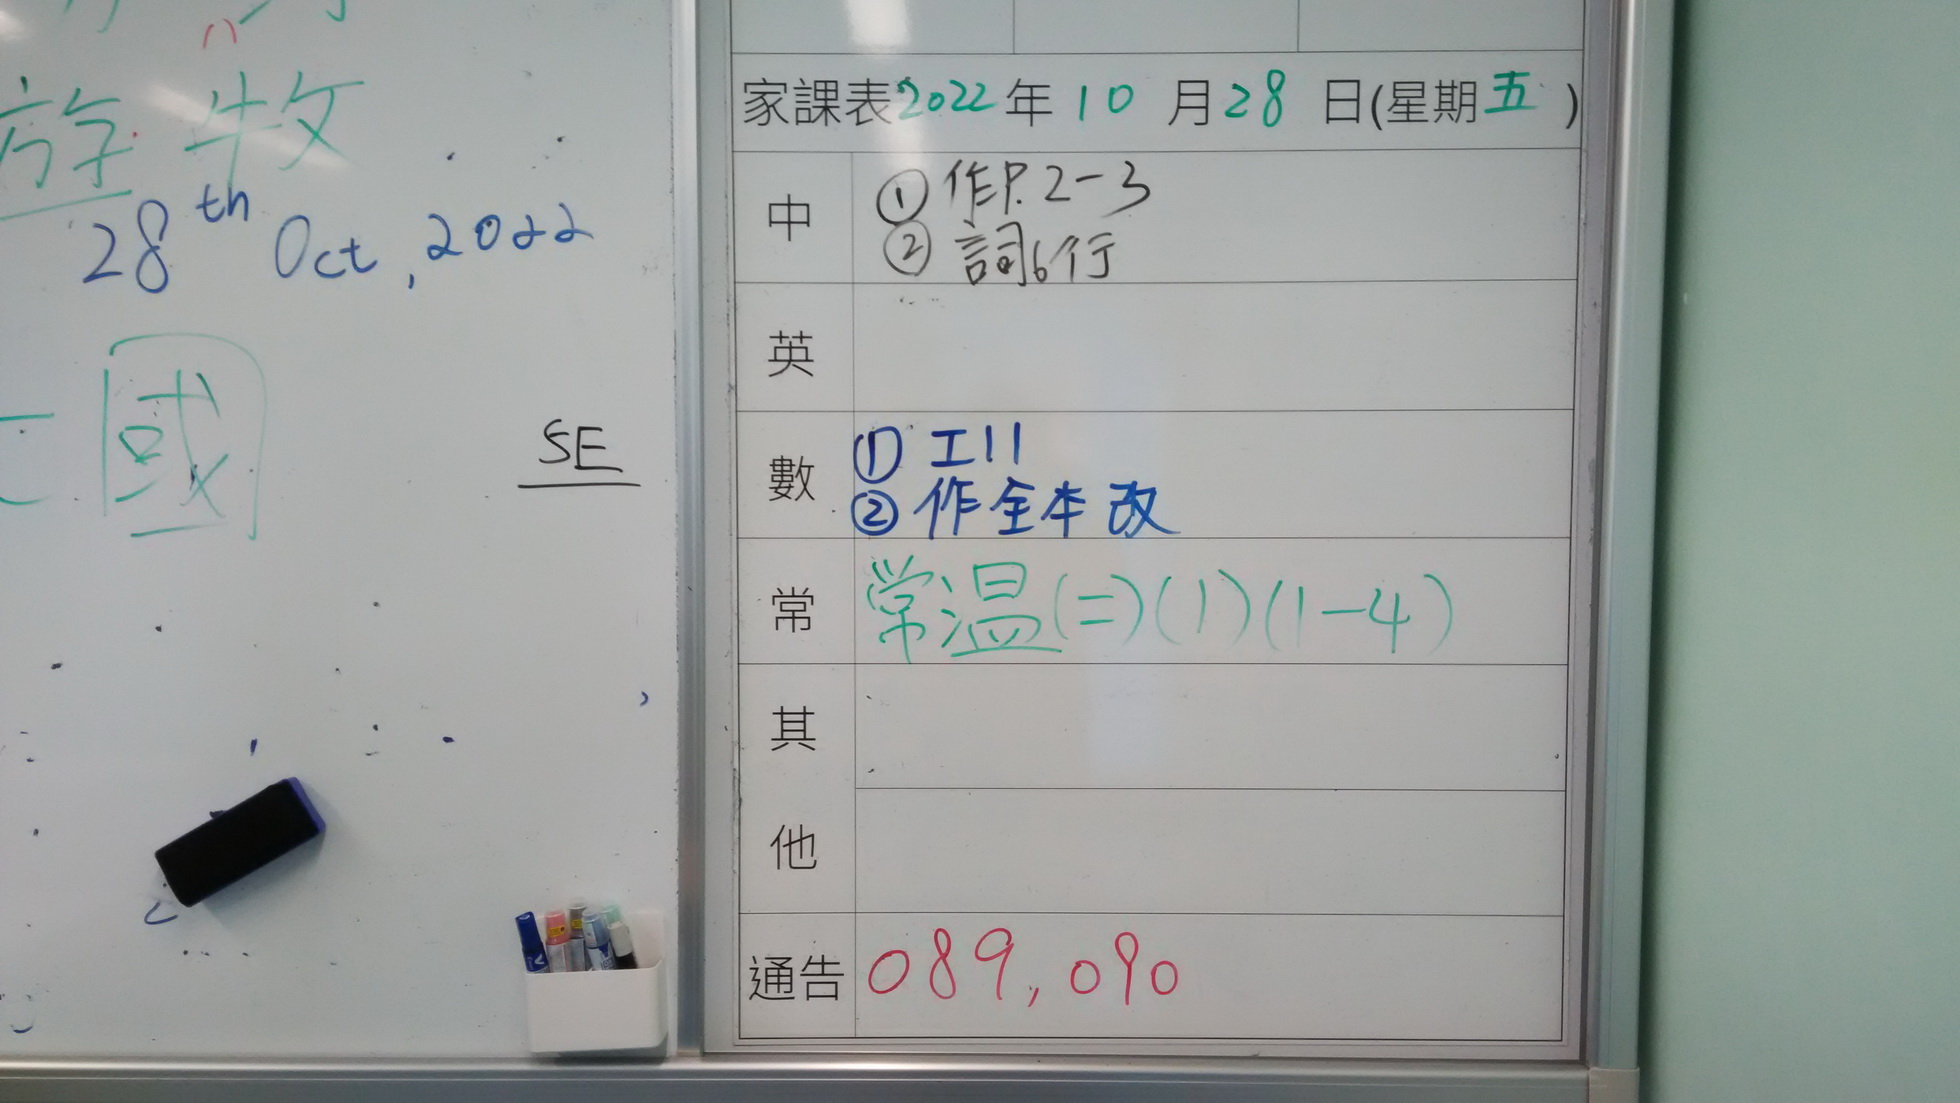 游牧
28th Oct, 2022
國
5E
家課表2022年10月28日(星期五)
中
① 作P.2-3
② 詞6行
英
數
① 工11
② 作全本改
常
常温(二)(1)(1-4)
其
他
通告
089,090